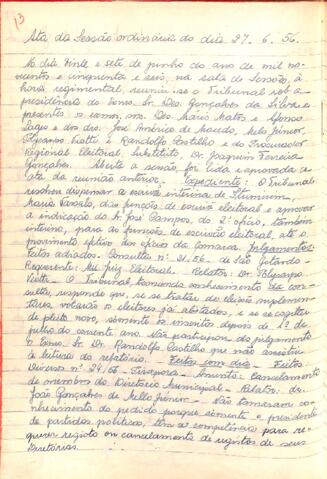 13
Ata da Sessão ordinária do dia 27.6.56.
No dia vinte e sete de junho do ano de mil nove
centos e cinquenta e seis, na sala de Sessões, à
hora regimental, reuniu-se o Tribunal sob a
presidência do Exmo. Sr. Des. Gonçalves da Silva e
presentes os exmos. srs. Des. Mário Matos e Afonso
Lages e os drs. José Américo de Macedo, Melo Júnior,
Viotti e Randolfo Castilho e do Procurador
Regional Eleitoral Substituto, Dr. Joaquim Ferreira
Gonçalves. Aberta a sessão, foi lida e aprovada a
ata da reunião anterior. Expediente: O Tribunal
resolveu dispensar a escrivã interina de
Maria das funções de escrivã eleitoral e aprovar
a indicação do Sr. José Campos, do 2º ofício, também
interino, para as funções de escrivão eleitoral, até o
provimento efetivo dos ofícios da comarca. Julgamentos:
Feitos adiados. Consulta nº 21.56. de São Gotardo.
Requerente: M. Juiz Eleitoral. Relator: Dr.
Viotti. O Tribunal tomando conhecimento da con-
sulta, respondeu que, se se tratar de eleições suplemen-
tares, votarão os eleitores já alistados, e se se cogitar
de pleito novo, somente os inscritos depois de 1º de
julho do corrente ano. Não participou do julgamento
o Exmo. Sr. Dr. Randolfo Castilho que não assistiu
à leitura do relatório. Feitos com dia. Feitos
Diversos nº 24/56 - Pirapora - Assunto: Cancelamento
de membro do Diretório Municipal - Relator: dr.
João Gonçalves de Mello Júnior. - Não tomaram co-
nhecimento do pedido porque somente o presidente
de partidos políticos, tem a competência para re-
querer registro ou cancelamento de registros de seus
Diretórios.